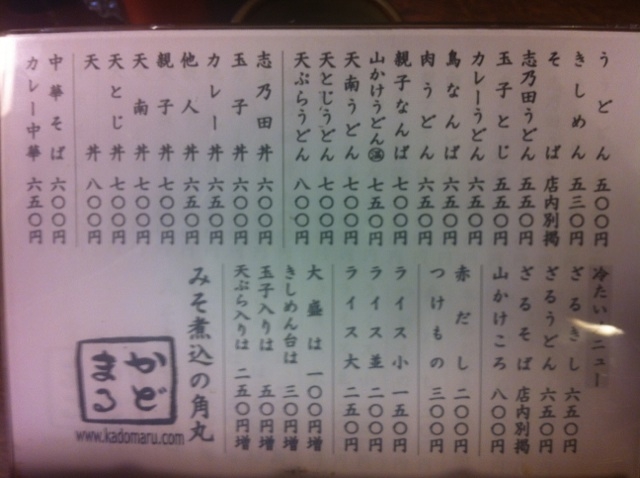 うどん 五〇〇円
きしめん 五三〇円
そば 店内別掲
志乃田うどん 五五〇円
玉子とじ 五五〇円
カレーうどん 六五〇円
鳥なんば 六五〇円
肉うどん 六五〇円
親子なんば 七〇〇円
山かけうどん㊩ 七五〇円
天南うどん 七〇〇円
天とじうどん 七〇〇円
天ぷらうどん 八〇〇円
志乃田丼 六〇〇円
玉子丼 六〇〇円
カレー丼 六五〇円
他人丼 六五〇円
親子丼 七〇〇円
天南丼 七〇〇円
天とじ丼 七〇〇円
天丼 八〇〇円
中華そば 六〇〇円
カレー中華 六五〇円
冷たいメニュー
ざるきし 六五〇円
ざるうどん 六五〇円
ざるそば 店内別掲
山かけころ 八〇〇円
赤だし 二〇〇円
つけもの 三〇〇円
ライス小 一五〇円
ライス並 二〇〇円
ライス大 二五〇円
大盛は 一〇〇円増
きしめん台は 三〇円増
玉子入りは 五〇円増
天ぷら入りは 二五〇円増
みそ煮込の角丸
かど
まる
www.kadomaru.com